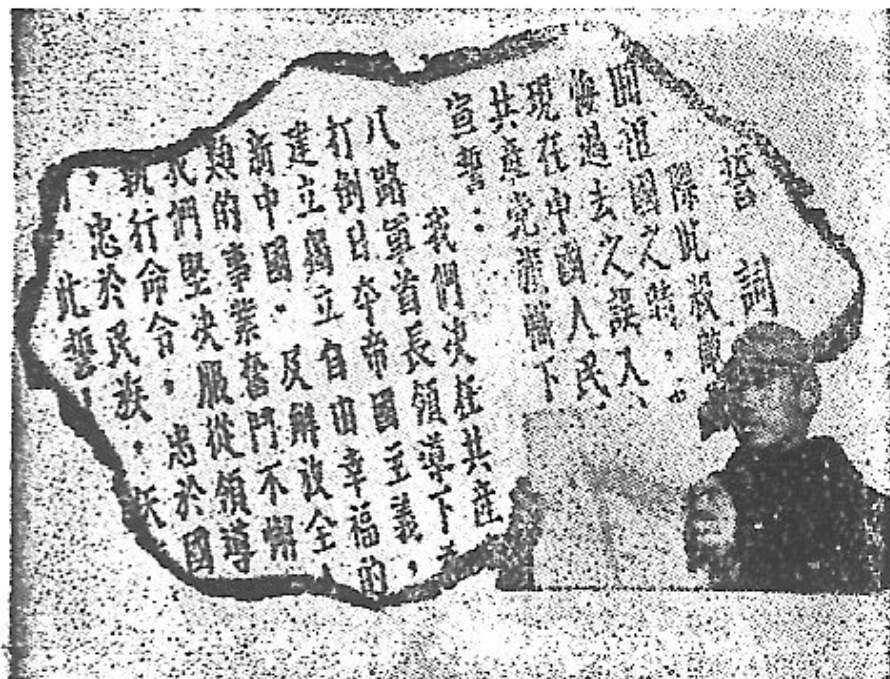 誓詞
際此殺敵
圖滔國之時，
悔過去之誤入
現在中國人民
共產党旗幟下
宣誓：
我們决在共產
八路軍首長領導下
打倒日本帝國主義，
建立獨立自由幸福的
新中國．及解放全人
類的事業奮鬥不懈
我們堅决服從領導
執行命令，忠於國
，忠於民族．矢
此誓！